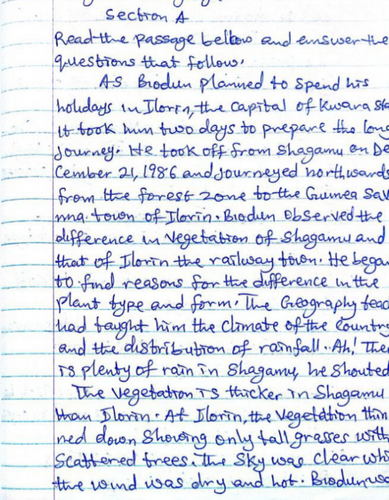 Section A
Read the passage bellow and answer the
questions that follow.
As Biodun planned to spend his
holidays in Ilorin, the capital of Kwara Sta
it took him two days to prepare the long
journey. He took off from Shagamu on De
cember 21, 1986 and journeyed northwards
from the forest zone to the Guinea Sav
nna town of Ilorin. Biodun observed the
difference in vegetation of Shagamu and
that of Ilorin the railway town. He began
to find reasons for the difference in the
plant type and form. The Geography teac
had taught him the climate of the country
and the distribution of rainfall. Ah! Ther
is plenty of rain in Shagamu, he shouted
The vegetation is thicker in Shagamu
than Ilorin. At Ilorin, the vegetation thin
ned down showing only tall grasses with
scattered trees. The sky was clear whi
the wind was dry and hot. Biodun wa